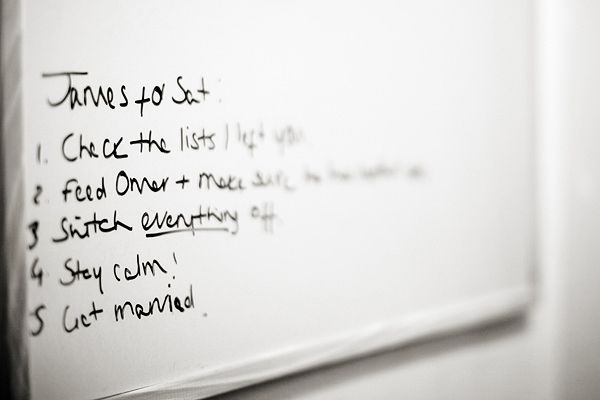 James for Sat:
1. Check the lists I left you
2. Feed Omer + make sure
3 Switch everything off.
4 Stay calm!
5 Get married.